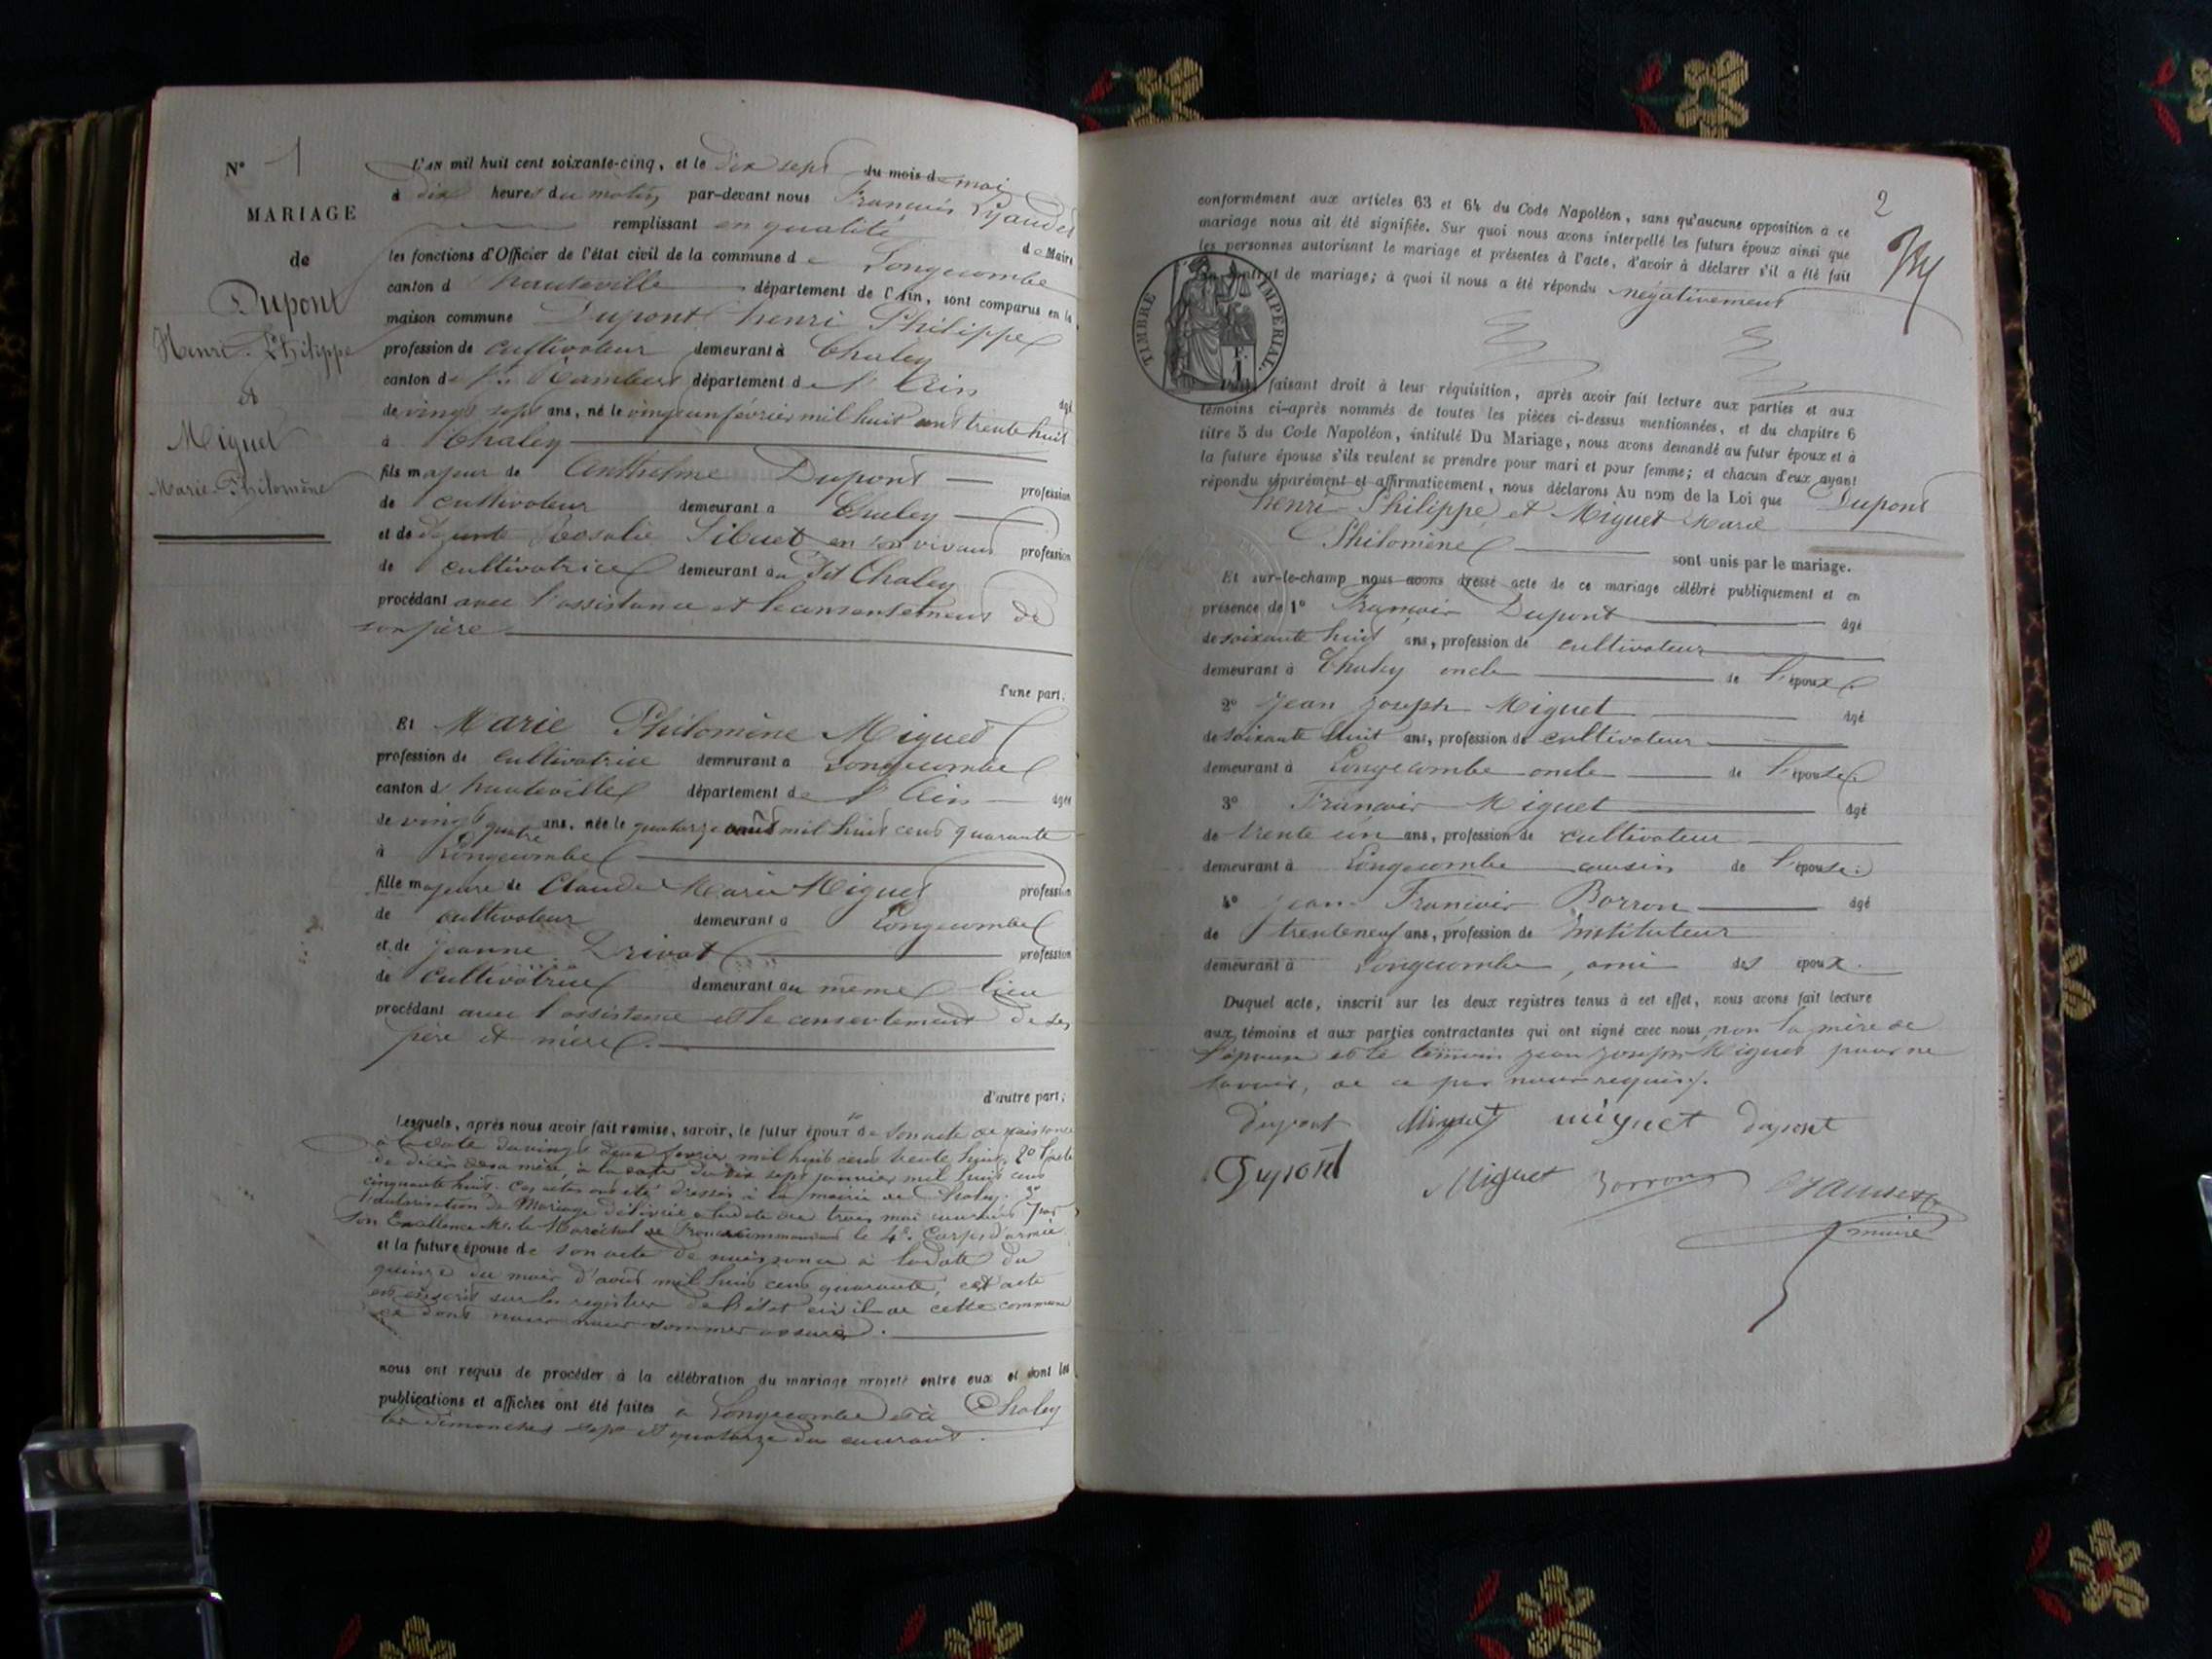 N° 1
MARIAGE
de
Dupont
Henri Philippe
et
Miguet
Marie Philomène
L'AN mil huit cent soixante-cinq, et le dix sept du mois de mai
à dix heures du matin par-devant nous François
remplissant en qualité de Maire
les fonctions d'Officier de l'état civil de la commune de Longecombe
canton d hauteville département de l'Ain, sont comparus en la
maison commune Dupont henri Philippe
profession de cultivateur demeurant à Chaley
canton de St. Rambert département de l'Ain âgé
de vingt sept ans, né le vingt un février mil huit cent trente huit
à Chaley
fils majeur de Anthelme Dupont profession
de cultivateur demeurant à Chaley
et de défunte Rosalie Sibuet en son vivant profession
de cultivatrice demeurant au dit Chaley
procédant avec l'assistance et le consentement de
son père
d'une part;
Et Marie Philomène Miguet
profession de cultivatrice demeurant à Longecombe
canton d hauteville département de l'Ain âgée
de vingt quatre ans, née le quatorze août mil huit cent quarante
à Longecombe
fille majeure de Claude Marie Miguet profession
de cultivateur demeurant à Longecombe
et de Jeanne Drivot profession
de cultivatrice demeurant au même lieu
procédant avec l'assistance et le consentement de ses
père et mère.
d'autre part;
Lesquels, après nous avoir fait remise, savoir, le futur époux de son acte de naissance
à la date du vingt deux février mil huit cent trente huit, 2° l'acte
de décès de sa mère, à la date du dix sept janvier mil huit cent
cinquante huit. Ces actes ont été dressés à la mairie de Chaley. 3°
l'autorisation de Mariage délivrée à la date du trois mai courant par
son Excellence Mr. le Maréchal de France commandant le 4e. Corps d'armée
et la future épouse de son acte de naissance à la date du
quinze du mois d'août mil huit cent quarante, cet acte
est inscrit sur les registres de l'état civil de cette commune
et dont nous nous sommes assuré.
nous ont requis de procéder à la célébration du mariage projeté entre eux et dont les
publications et affiches ont été faites à Longecombe et à Chaley
les dimanches sept et quatorze du courant.
2
conformément aux articles 63 et 64 du Code Napoléon, sans qu'aucune opposition à ce
mariage nous ait été signifiée. Sur quoi nous avons interpellé les futurs époux ainsi que
les personnes autorisant le mariage et présentes à l'acte, d'avoir à déclarer s'il a été fait
contrat de mariage; à quoi il nous a été répondu négativement
TIMBRE IMPÉRIAL.
faisant droit à leur réquisition, après avoir fait lecture aux parties et aux
témoins ci-après nommés de toutes les pièces ci-dessus mentionnées, et du chapitre 6
titre 5 du Code Napoléon, intitulé Du Mariage, nous avons demandé au futur époux et à
la future épouse s'ils veulent se prendre pour mari et pour femme; et chacun d'eux ayant
répondu séparément et affirmativement, nous déclarons Au nom de la Loi que Dupont
henri Philippe et Miguet Marie
Philomène
sont unis par le mariage.
Et sur-le-champ nous avons dressé acte de ce mariage célébré publiquement et en
présence de 1° François Dupont âgé
de soixante huit ans, profession de cultivateur
demeurant à Chaley oncle de l'époux.
2° Jean Joseph Miguet âgé
de soixante huit ans, profession de cultivateur
demeurant à Longecombe oncle de l'épouse
3° François Miguet âgé
de trente un ans, profession de cultivateur
demeurant à Longecombe cousin de l'épouse.
4° Jean François Borron âgé
de trente neuf ans, profession de Instituteur
demeurant à Longecombe, ami des époux.
Duquel acte, inscrit sur les deux registres tenus à cet effet, nous avons fait lecture
aux témoins et aux parties contractantes qui ont signé avec nous, non la mère de
l'épouse et le témoin Jean Joseph Miguet pour ne
savoir, de ce par nous requis.
dupont Miguet miguet dupont
Dupont Miguet Borron
maire